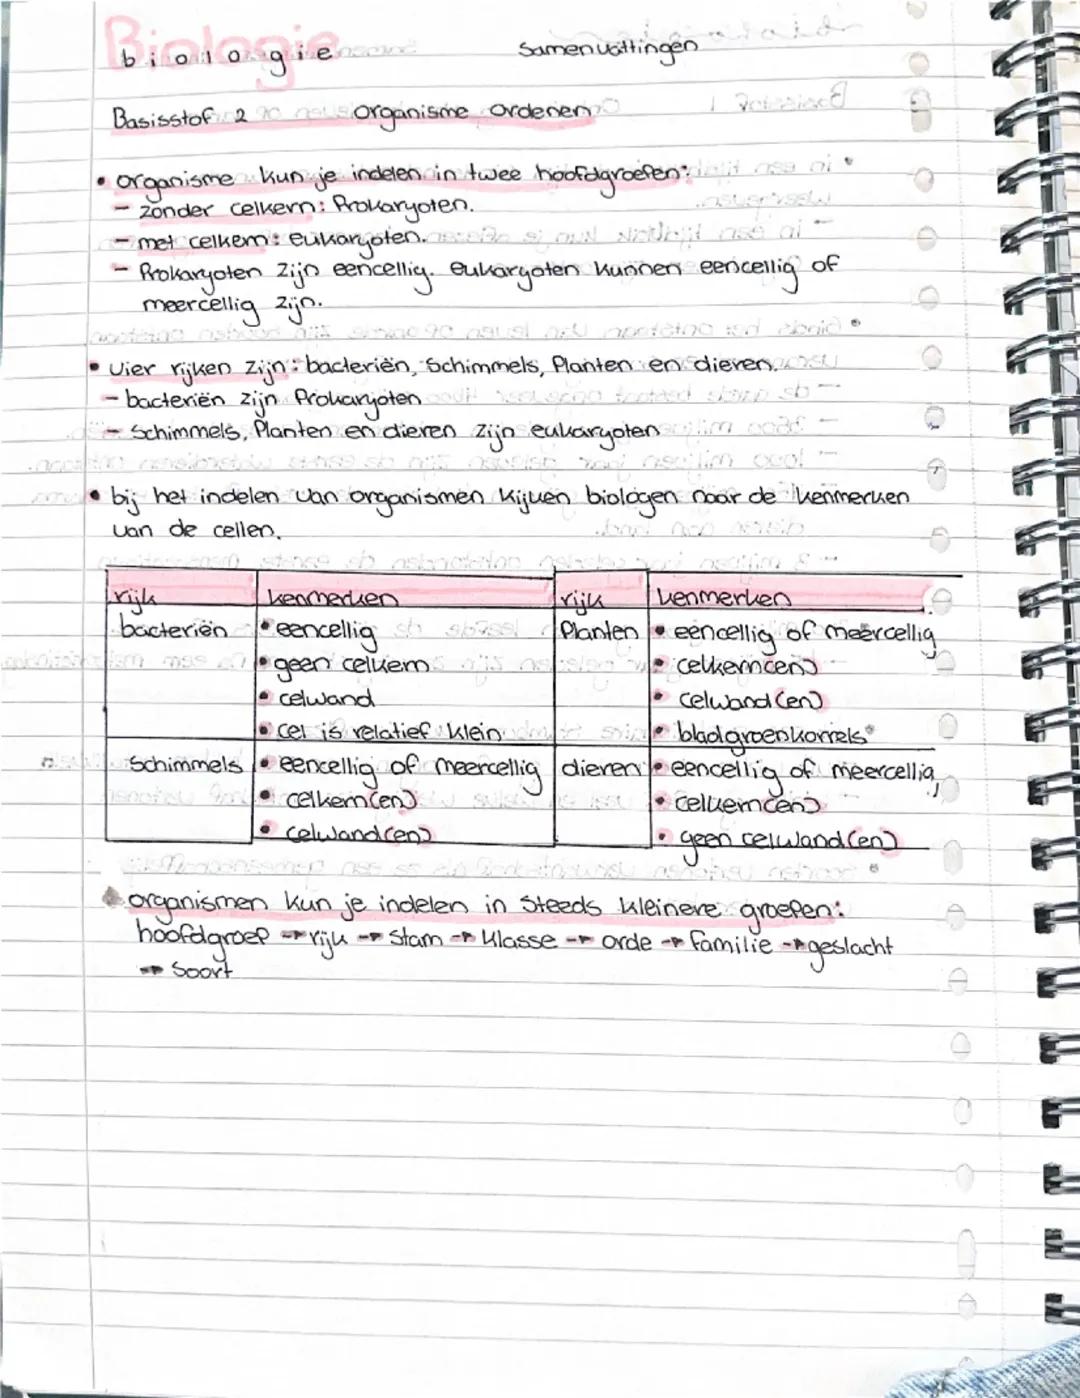 Biologie
biologie Samenvattingen
Basisstof 2 organisme ordenen
• organisme kun je indelen in twee hoofdgroepen:
- zonder celkern: Prokaryoten.
- met celkern: eukaryoten.
- Prokaryoten zijn eencellig. eukaryoten kunnen eencellig of
meercellig zijn.
• vier rijken zijn: bacteriën, Schimmels, Planten en dieren.
- bacteriën zijn Prokaryoten
- Schimmels, Planten en dieren zijn eukaryoten
• bij het indelen van organismen kijven biologen naar de kenmerken
van de cellen.
rijk kenmerken rijk kenmerken
bacteriën • eencellig Planten • eencellig of meercellig
• geen celkern • celkern(en)
• celwand • celwand(en)
• cel is relatief klein • bladgroenkorrels
Schimmels • eencellig of meercellig dieren • eencellig of meercellig
• celkern(en) • celkern(en)
• celwand(en) • geen celwand(en)
organismen kun je indelen in steeds kleinere groepen:
hoofdgroep → rijk → Stam → Klasse → orde → familie → geslacht
→ Soort